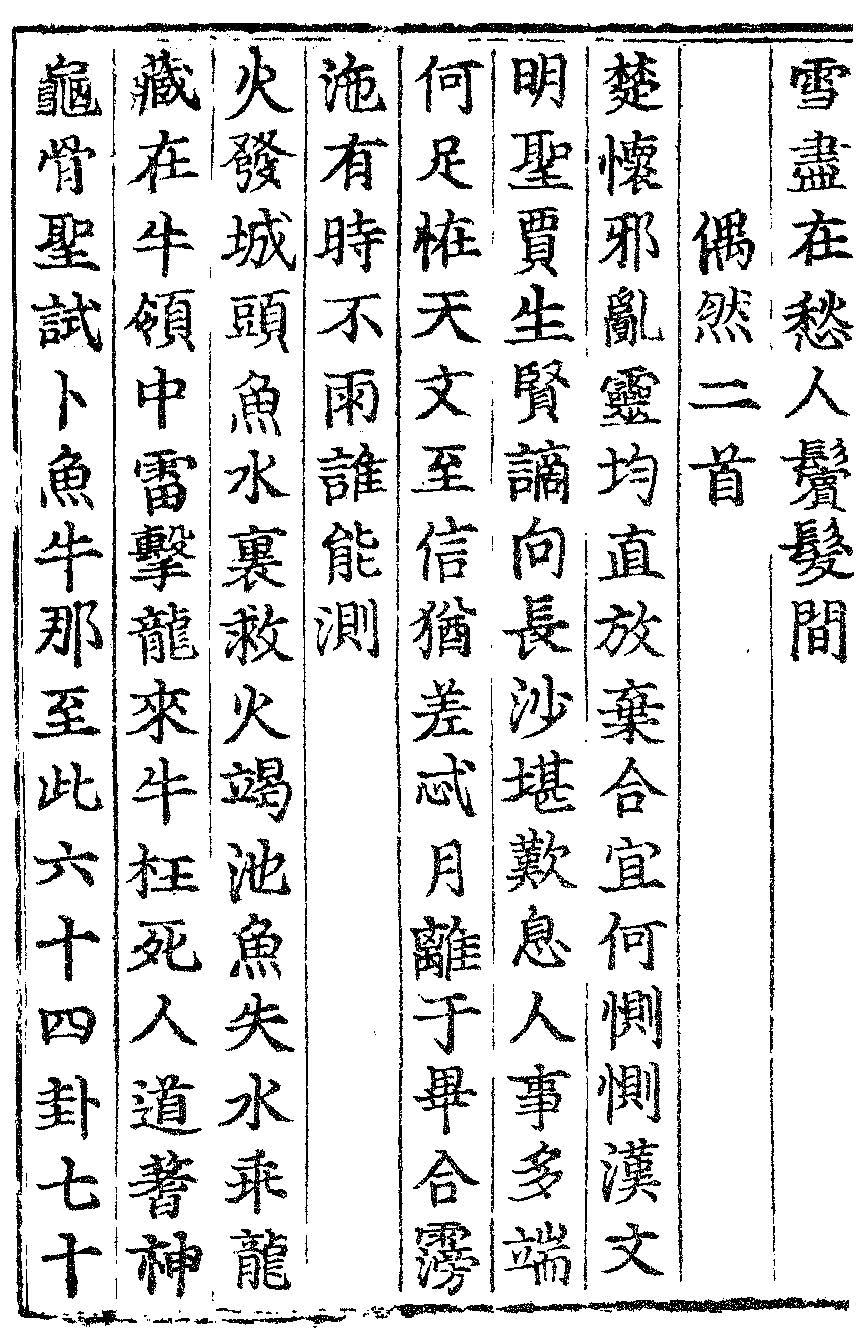 雪盡在愁人鬢髮間
偶然二首
楚懷邪亂靈均直放棄合宜何惻惻漢文
明聖賈生賢謫向長沙堪歎息人事多端
何足恠天文至信猶差忒月離于畢合霶
沲有時不雨誰能測
火發城頭魚水裏救火竭池魚失水乖龍
藏在牛領中雷擊龍來牛枉死人道蓍神
龜骨聖試卜魚牛那至此六十四卦七十